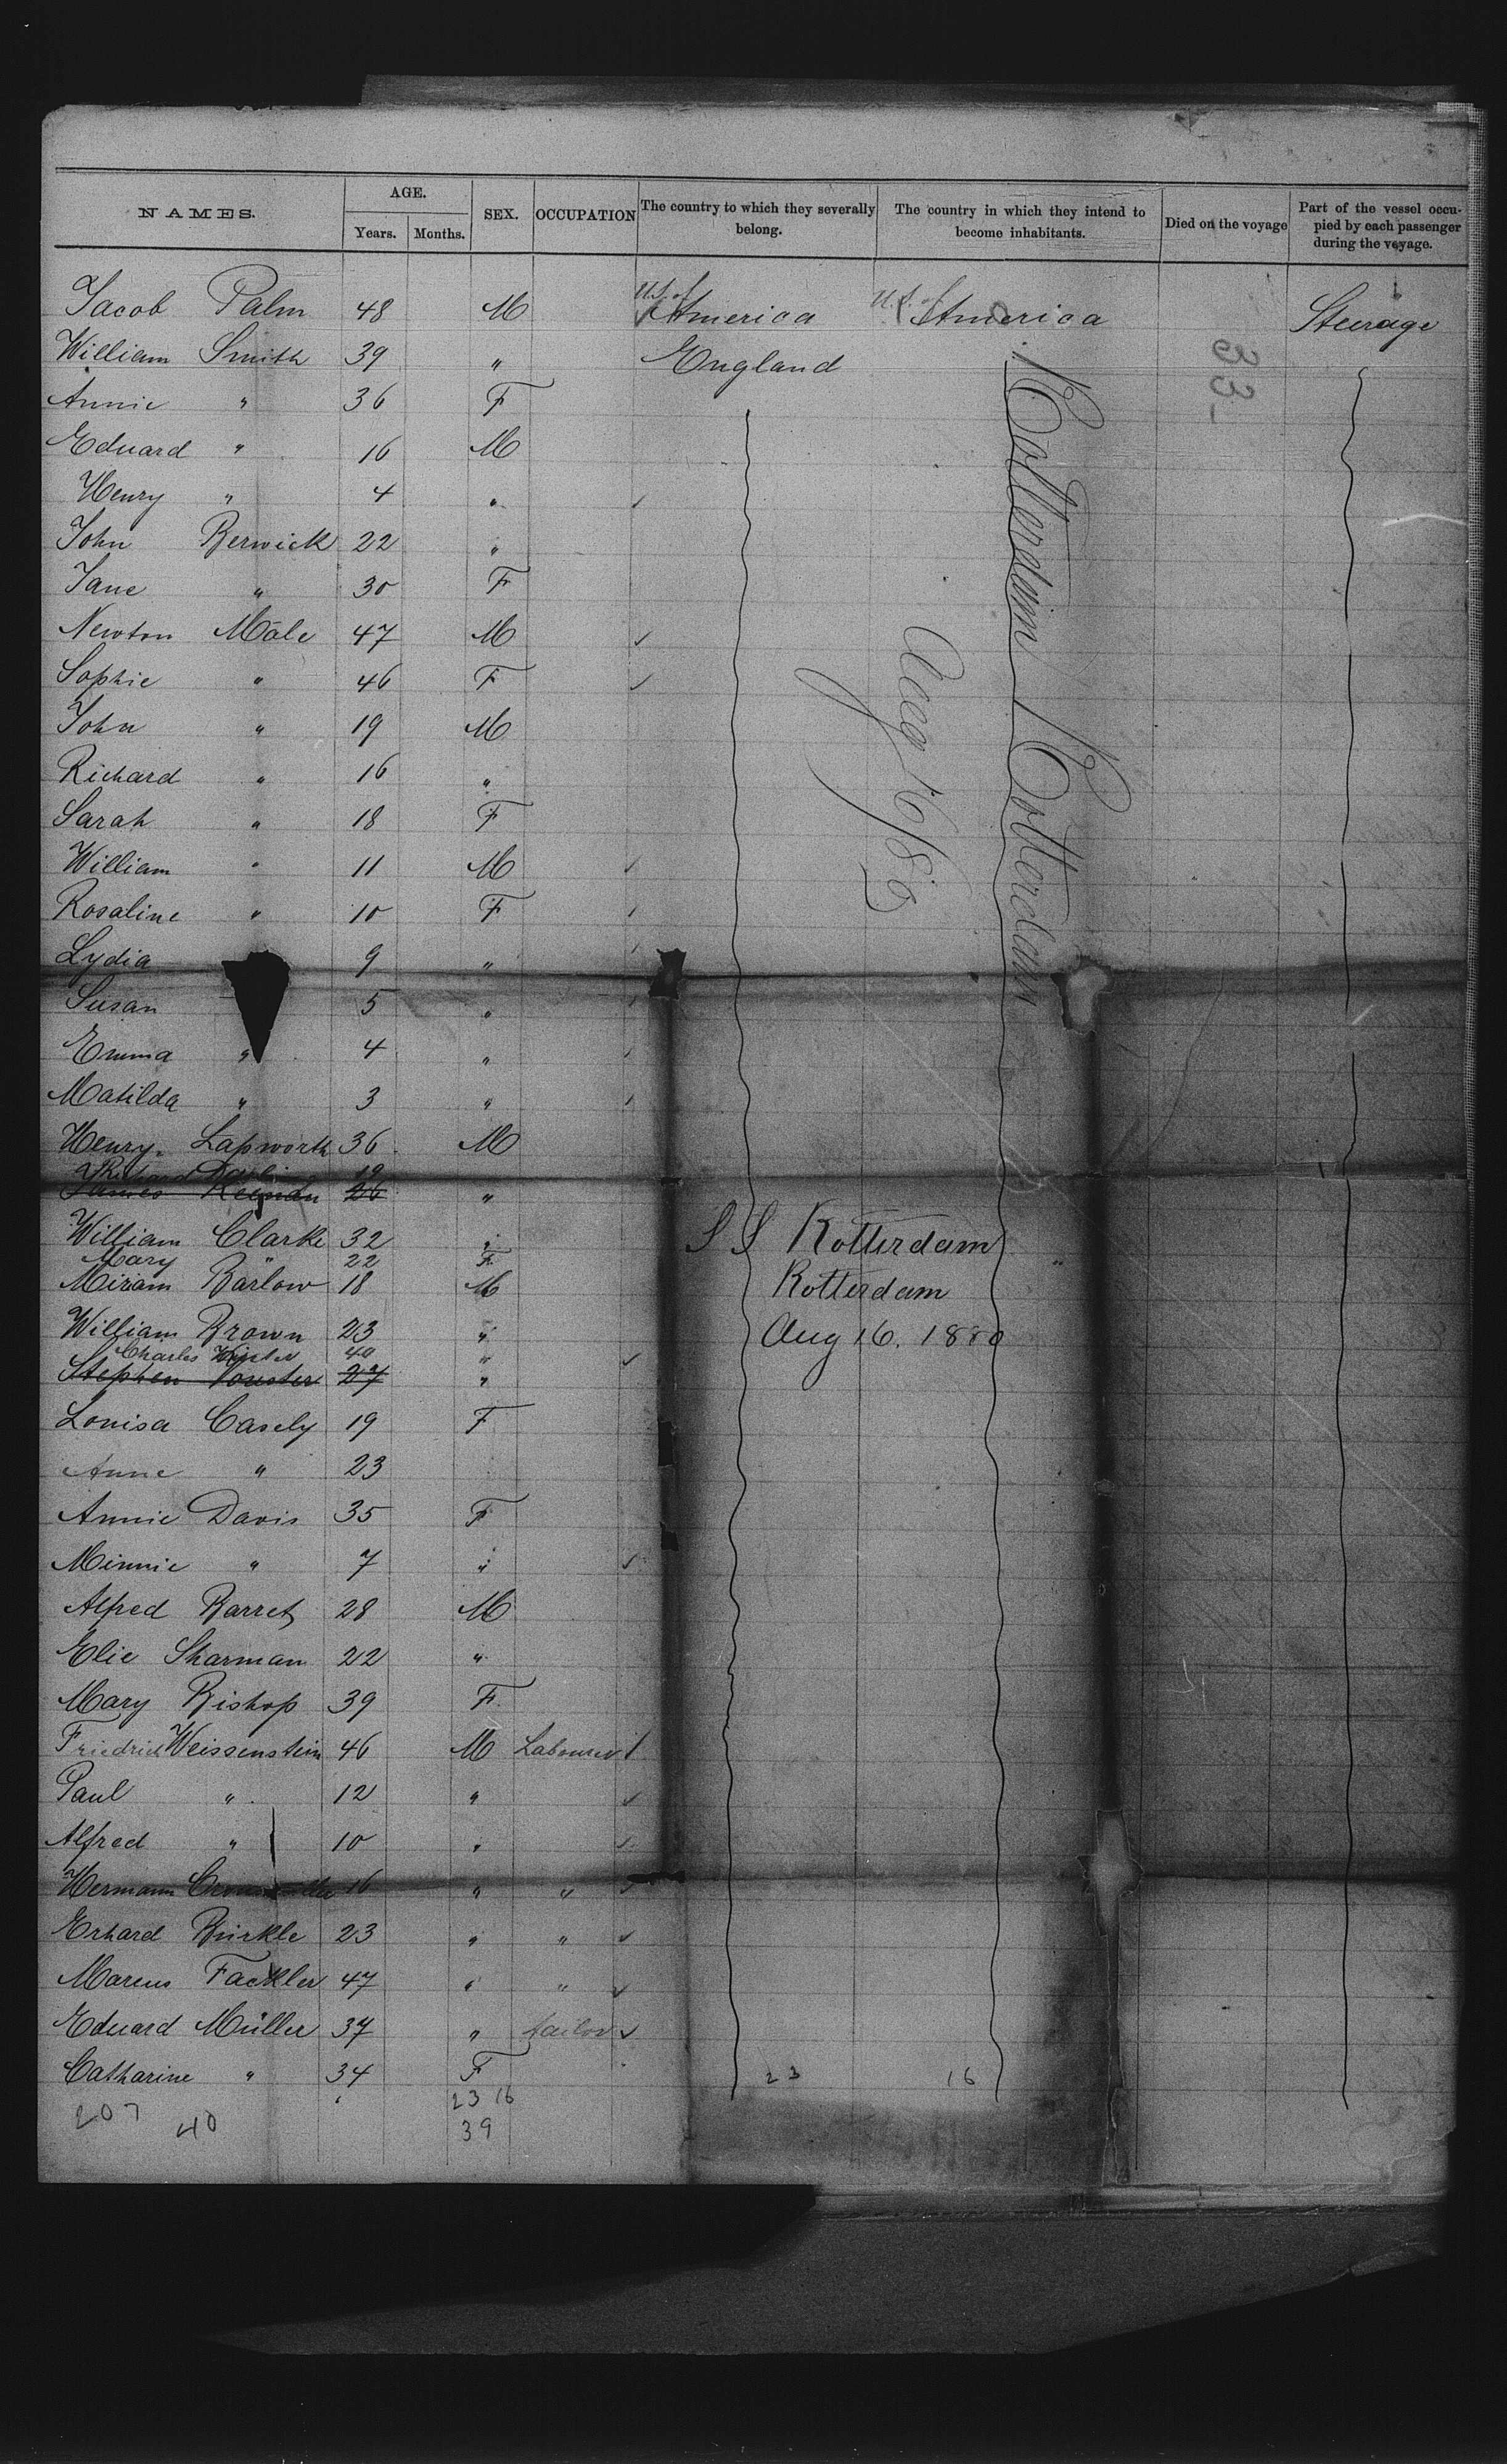 NAMES. AGE. SEX. OCCUPATION The country to which they severally belong. The country in which they intend to become inhabitants. Died on the voyage Part of the vessel occupied by each passenger during the voyage.
Years. Months.
Jacob Palm 48 M U.S. of America U.S. of America Steerage
William Smith 39 " England
Annie " 36 F
Eduard " 16 M
Henry " 4 "
John Berwick 22 "
Jane " 30 F
Newton Male 47 M
Sophie " 46 F
John " 19 M
Richard " 16 "
Sarah " 18 F
William " 11 M
Rosaline " 10 F
Lydia 9 "
Susan 5 "
Emma " 4 "
Matilda " 3 "
Henry Lapworth 36 M
Richard 19
James 26 "
William Clarke 32 "
Mary " 22 F
Miriam Barlow 18 M
William Brown 23 "
Charles Winter 40 "
Stephen 27 "
Louisa Casely 19 F
Anne " 23
Annie Davis 35 F
Minnie " 7 "
Alfred Barret 28 M
Elie Sharman 22 "
Mary Bishop 39 F
Friedrich Weissenstein 46 M Labourer
Paul " 12 "
Alfred " 10 "
Hermann 16 " "
Erhard Bürkle 23 " "
Marcus Fackler 47 " "
Eduard Müller 37 " tailor
Catharine " 34 F 23 16
207 40 23 16
39
Rotterdam Rotterdam
Aug 16/80
S S Rotterdam
Rotterdam
Aug 16. 1880
33